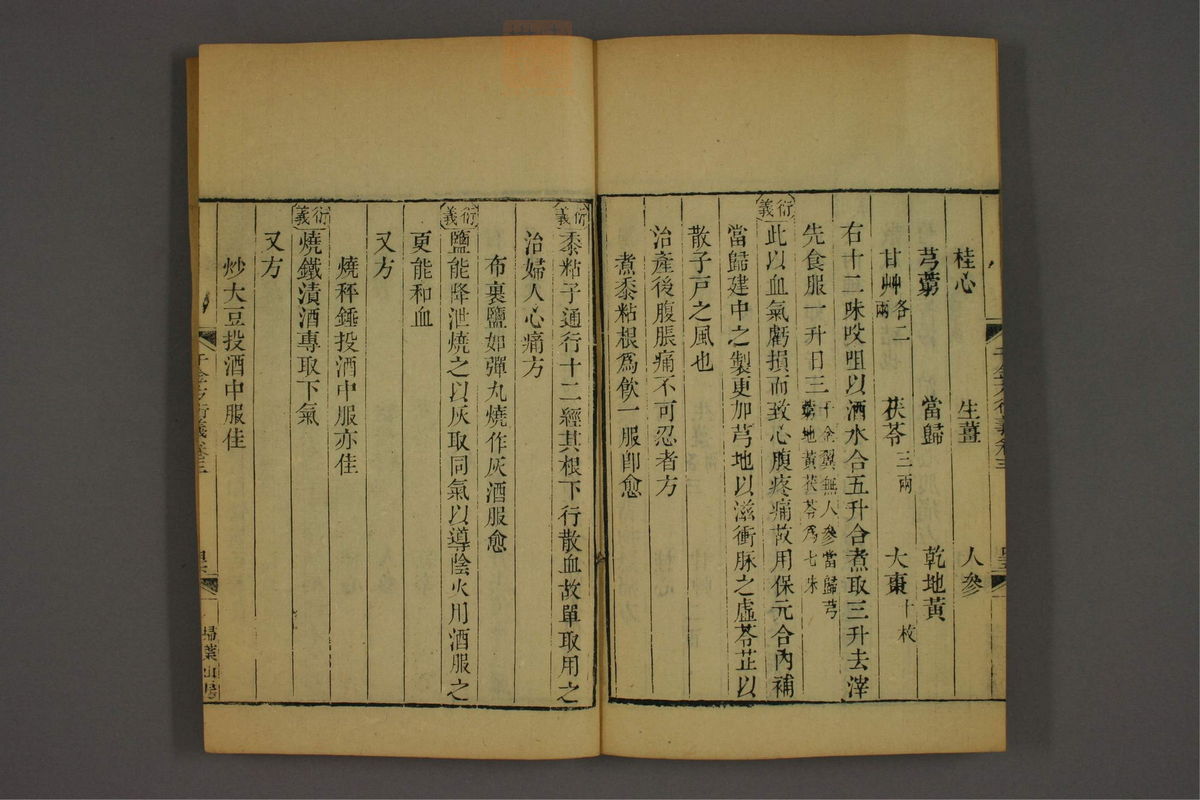 桂心　生薑　人參
芎藭　當歸　乾地黃
甘艸各二兩　茯苓三兩　大棗十枚
右十二味㕮咀以酒水合五升合煮取三升去滓
先食服一升日三千金翼無人參當歸芎藭地黃茯苓爲七味
衍義此以血氣虧損而致心腹疼痛故用保元合內補
當歸建中之製更加芎地以滋衝脉之虛苓芷以
散子戸之風也
治產後腹脹痛不可忍者方
煮黍粘根爲飮一服卽愈
衍義黍粘子通行十二經其根下行散血故單取用之
治婦人心痛方
布裹鹽如彈丸燒作灰酒服愈
衍義鹽能降泄燒之以灰取同氣以導陰火用酒服之
更能和血
又方
燒秤錘投酒中服亦佳
衍義燒鐵漬酒專取下氣
又方
炒大豆投酒中服佳
千金方衍義卷三
掃葉山房